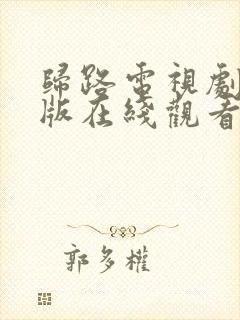 歸路電視劇
版在綫觀看
郭多權